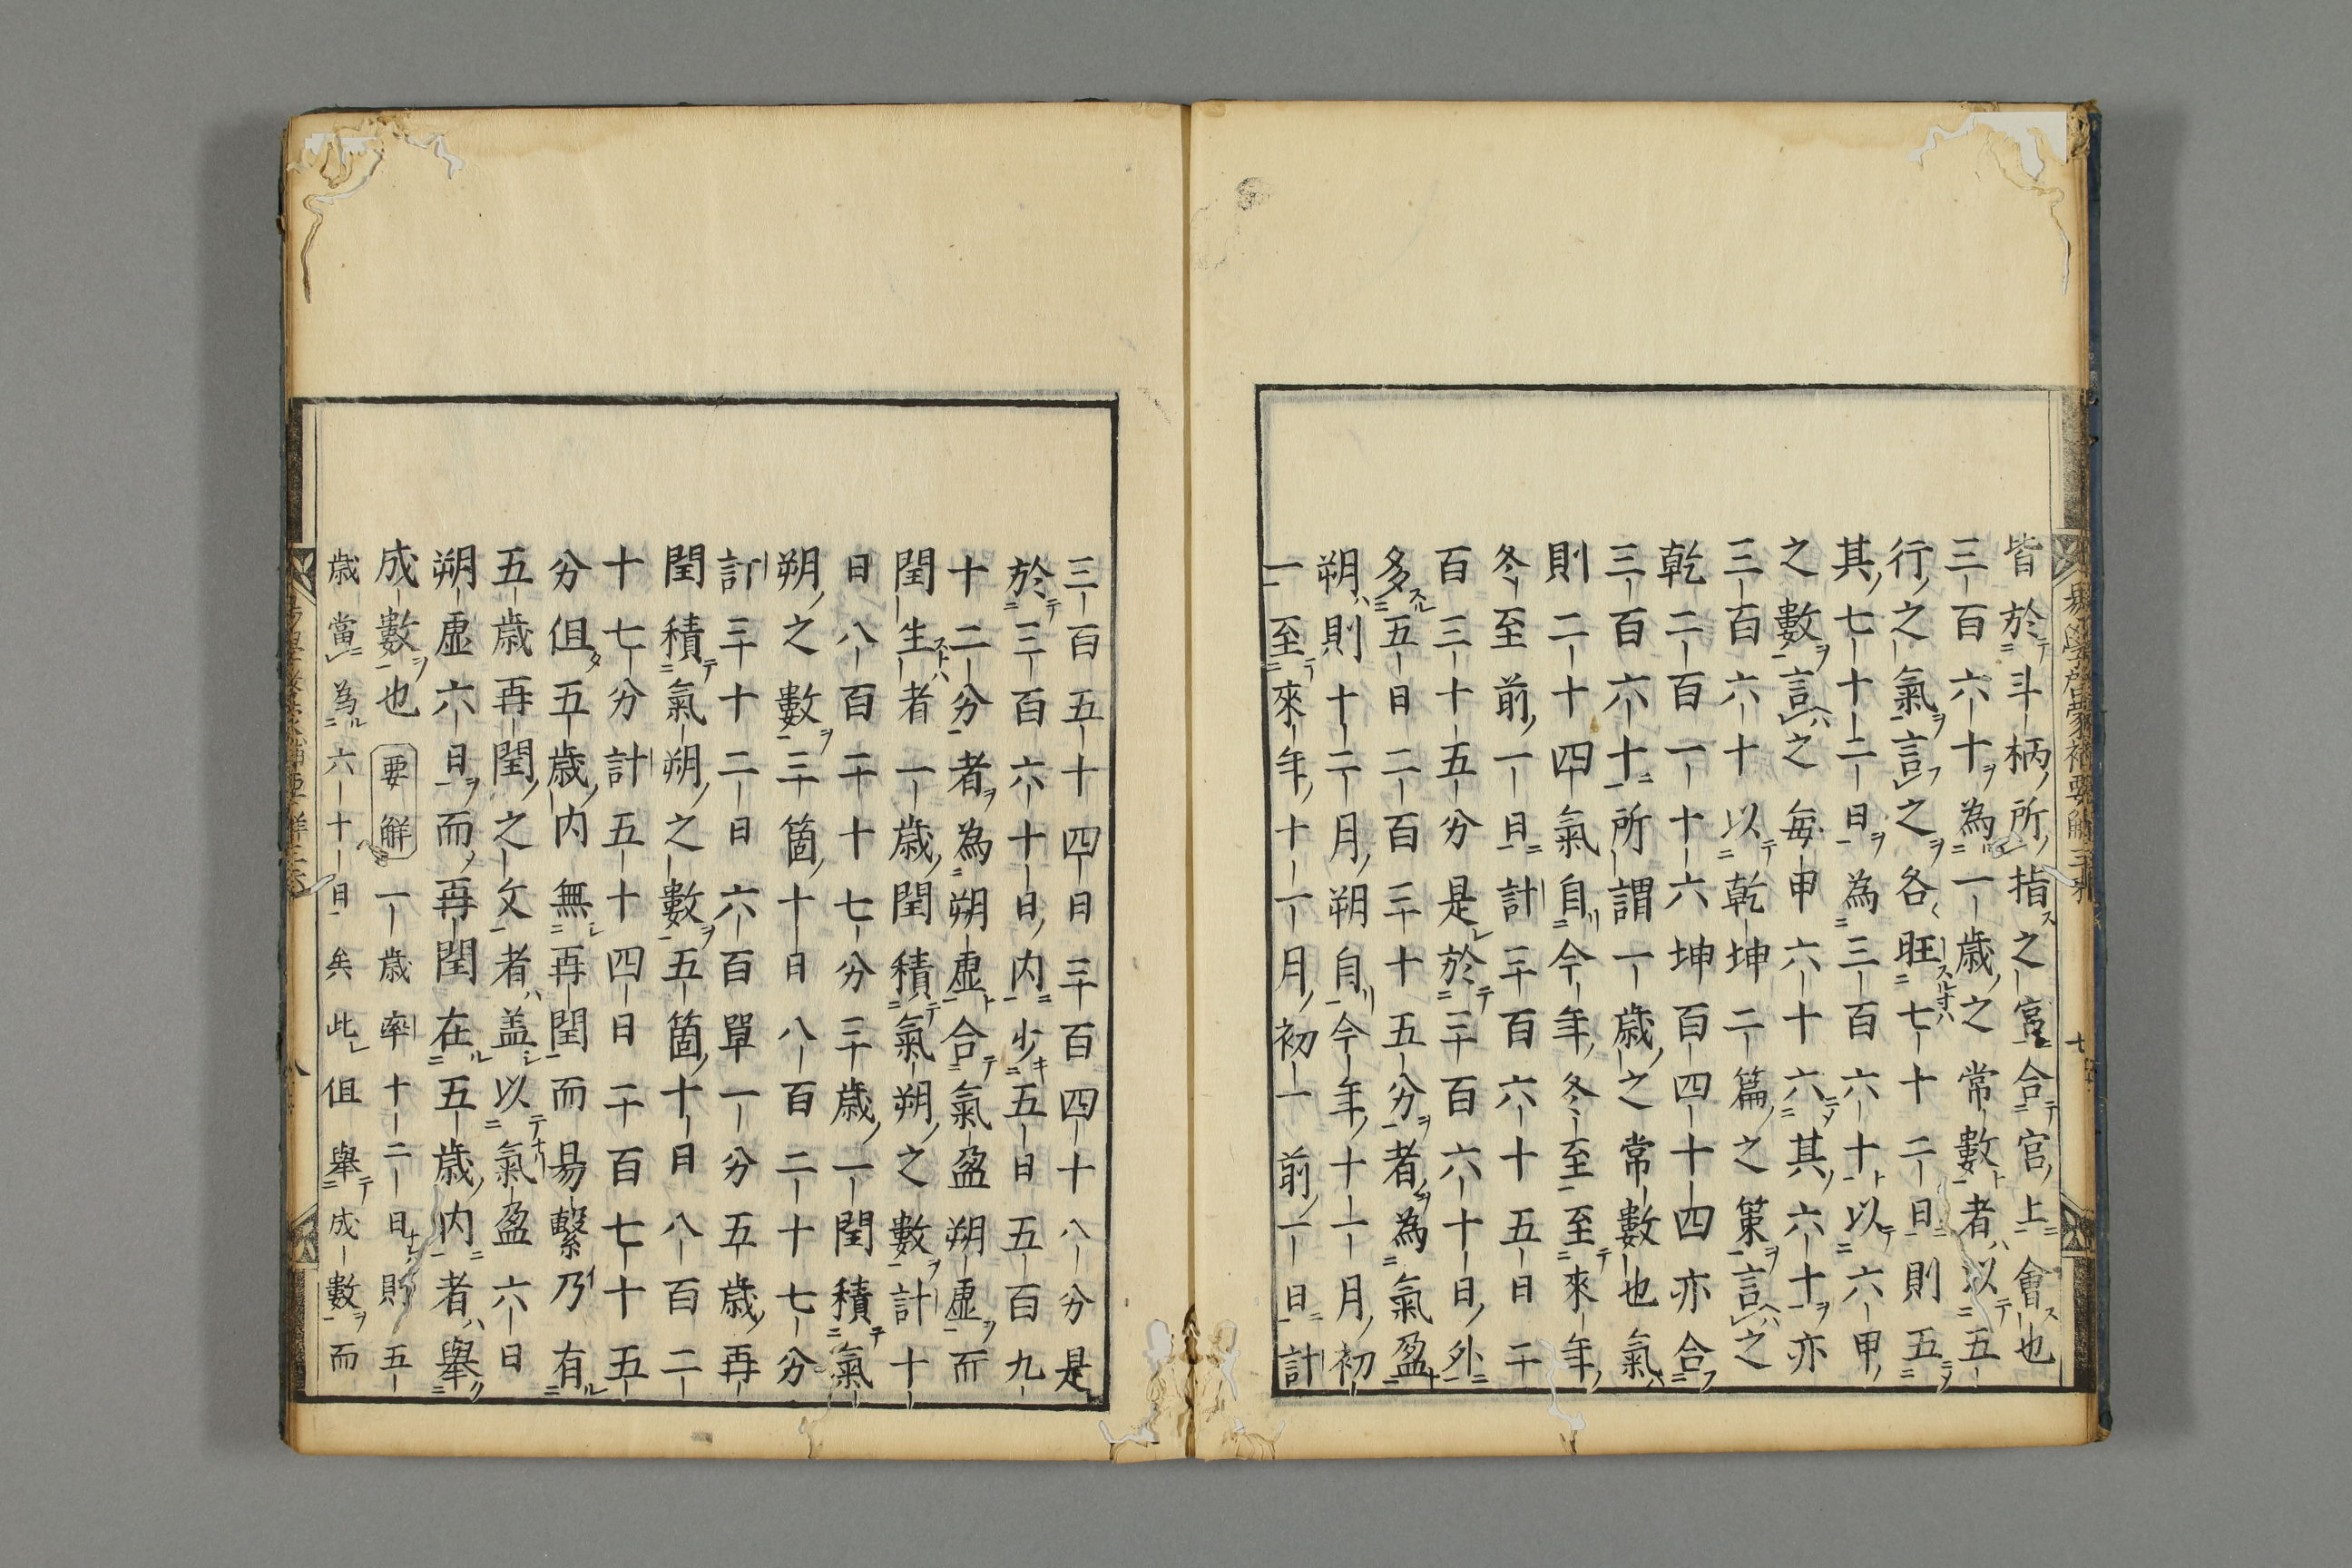 皆於斗柄所指之宮合官上會也
三百六十為一歲之常數者以五
行之氣言之各旺七十二日則五
其七十二日為三百六十以六甲
之數言之每甲六十六其六十亦
三百六十以乾坤二篇之策言之
乾二百一十六坤百四十四亦合
三百六十所謂一歲之常數也氣
則二十四氣自今年冬至至來年
冬至前一日計三百六十五日二
百三十五分是於三百六十日外
多五日二百三十五分者為氣盈
朔則十二月朔自今年十一月初
一至來年十一月初一前一日計
三百五十四日三百四十八分是
於三百六十日内少五日五百九
十二分者為朔虛合氣盈朔虛而
閏生者一歲閏積氣朔之數計十
日八百二十七分三歲一閏積氣
朔之數三箇十日八百二十七分
計三十二日六百單一分五歲再
閏積氣朔之數五箇十日八百二
十七分計五十四日二百七十五
分但五歲内無再閏而易繫乃有
五歲再閏之文者盖以氣盈六日
朔虛六日而再閏在五歲内者舉
成數也 要解 一歲率十二日則五
歲當為六十日矣此但舉成數而